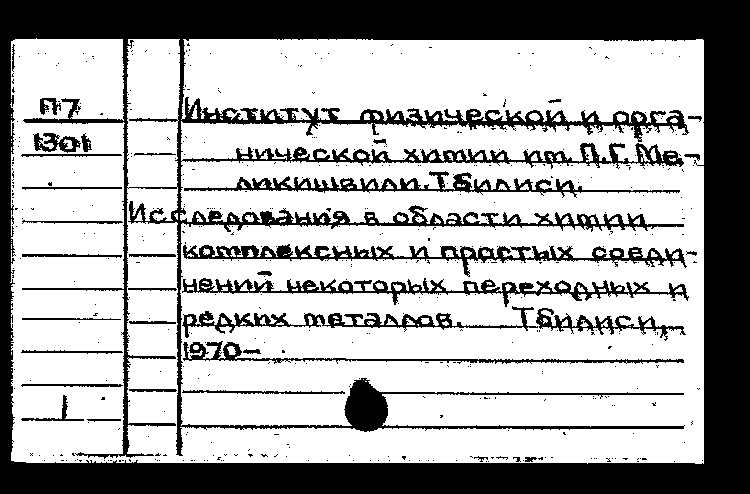 П7
1301
Институт физической и орга-
нической химии им. П.Г. Ме-
ликишвили. Тбилиси.
Исследования в области химии
комплексных и простых соеди-
нений некоторых переходных и
редких металлов. Тбилиси,
1970-
1